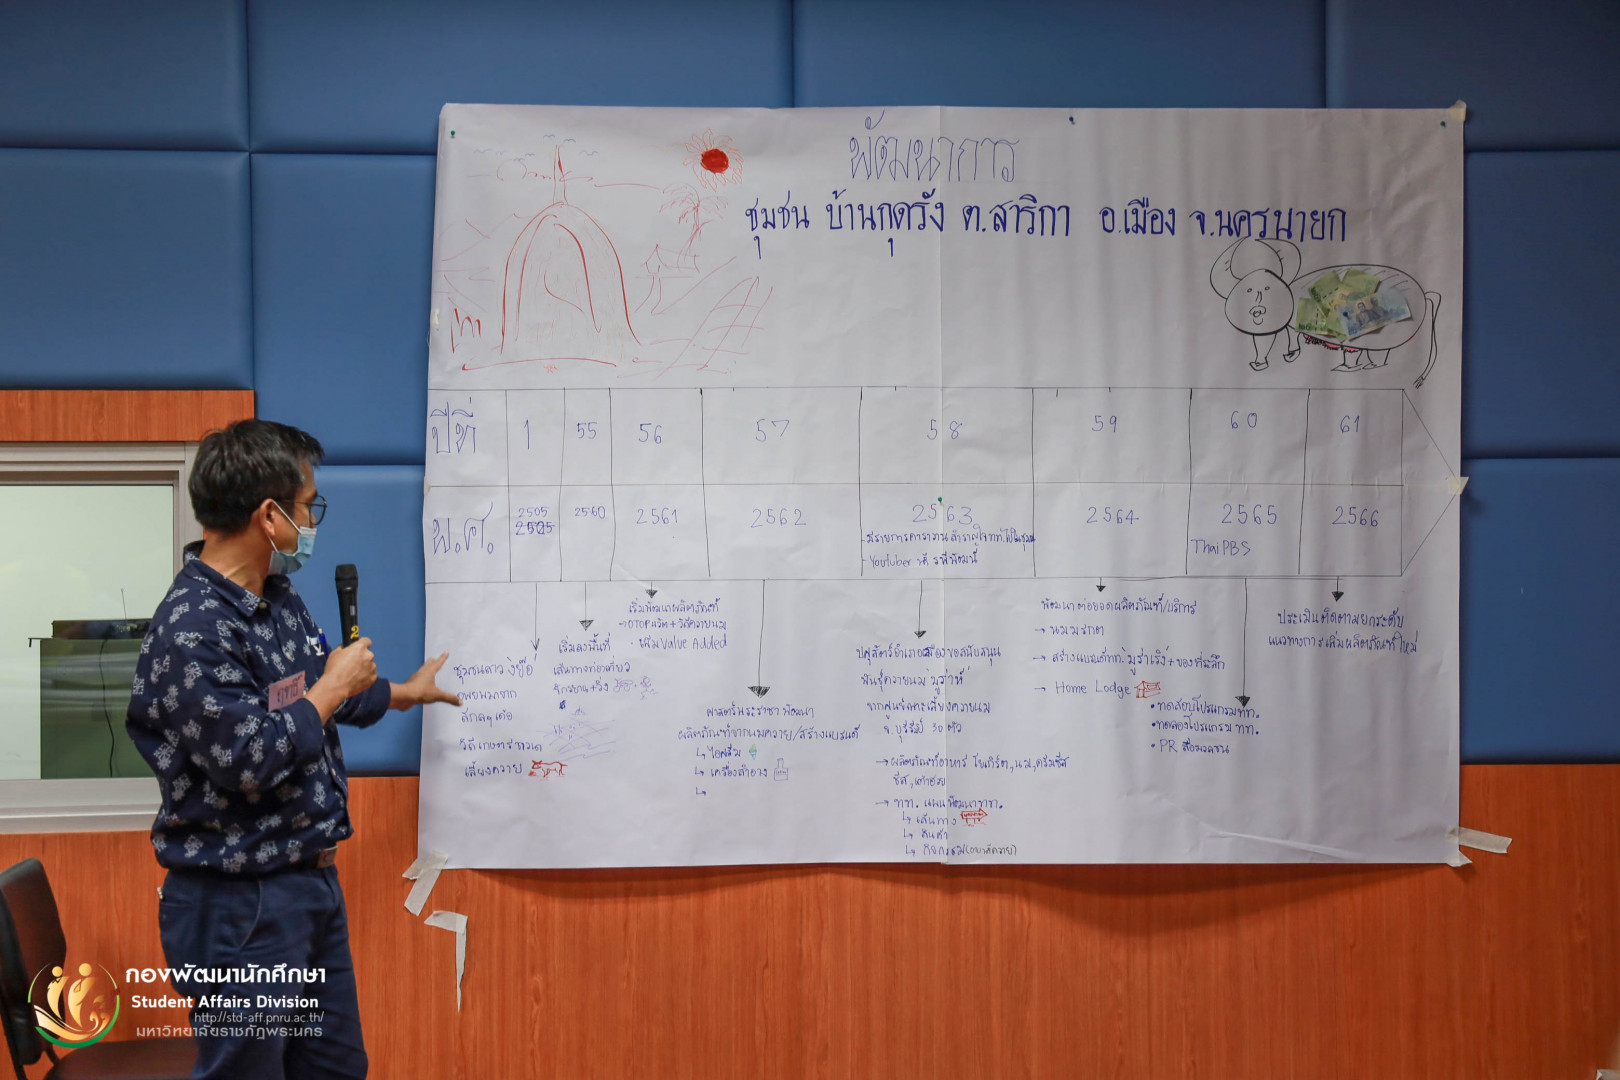 พัฒนาการ
ชุมชน บ้านกุดรัง ต.สาริกา อ.เมือง จ.นครนายก
ปีที่ 1 55 56 57 58 59 60 61
พ.ศ. 2505 2560 2561 2562 2563 2564 2565 2566
2505
- Youtuber
ThaiPBS
ชุมชนลาว
อพยพมาจาก
วิถีเกษตร
เลี้ยงควาย
เริ่มลงพื้นที่
เส้นทางท่องเที่ยว
จักรยาน + วิ่ง
เริ่มพัฒนาผลิตภัณฑ์
→ OTOP นวัต + วิถีควายนม
- เพิ่ม Value Added
ศาสตร์พระราชา พัฒนา
ผลิตภัณฑ์จากนมควาย/สร้างแบรนด์
↳ ไอศรีม
↳ เครื่องสำอาง
↳
ปศุสัตว์อำเภอ
พันธุ์ควายนม มูร่าห์
จ.บุรีรัมย์ 30 ตัว
→ ผลิตภัณฑ์อาหาร โยเกิร์ต, นม, ครีมชีส
ชีส, เต้าฮวย
↳ เส้นทาง
↳ สินค้า
↳ กิจกรรม
พัฒนาต่อยอดผลิตภัณฑ์/บริการ
→ สร้างแบรนด์ + ของที่ระลึก
→ Home Lodge
• ทดสอบโปรแกรม ทท.
• ทดลองโปรแกรม ทท.
• PR สื่อมวลชน
ประเมินติดตามยกระดับ
แนวทางการเพิ่มผลิตภัณฑ์ใหม่
กองพัฒนานักศึกษา
Student Affairs Division
http://std-aff.pnru.ac.th/
มหาวิทยาลัยราชภัฏพระนคร